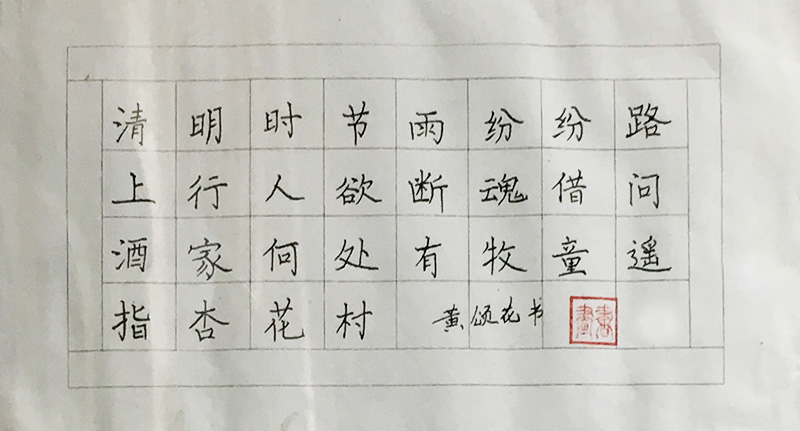 清明时节雨纷纷路
上行人欲断魂借问
酒家何处有牧童遥
指杏花村 黄颂花书